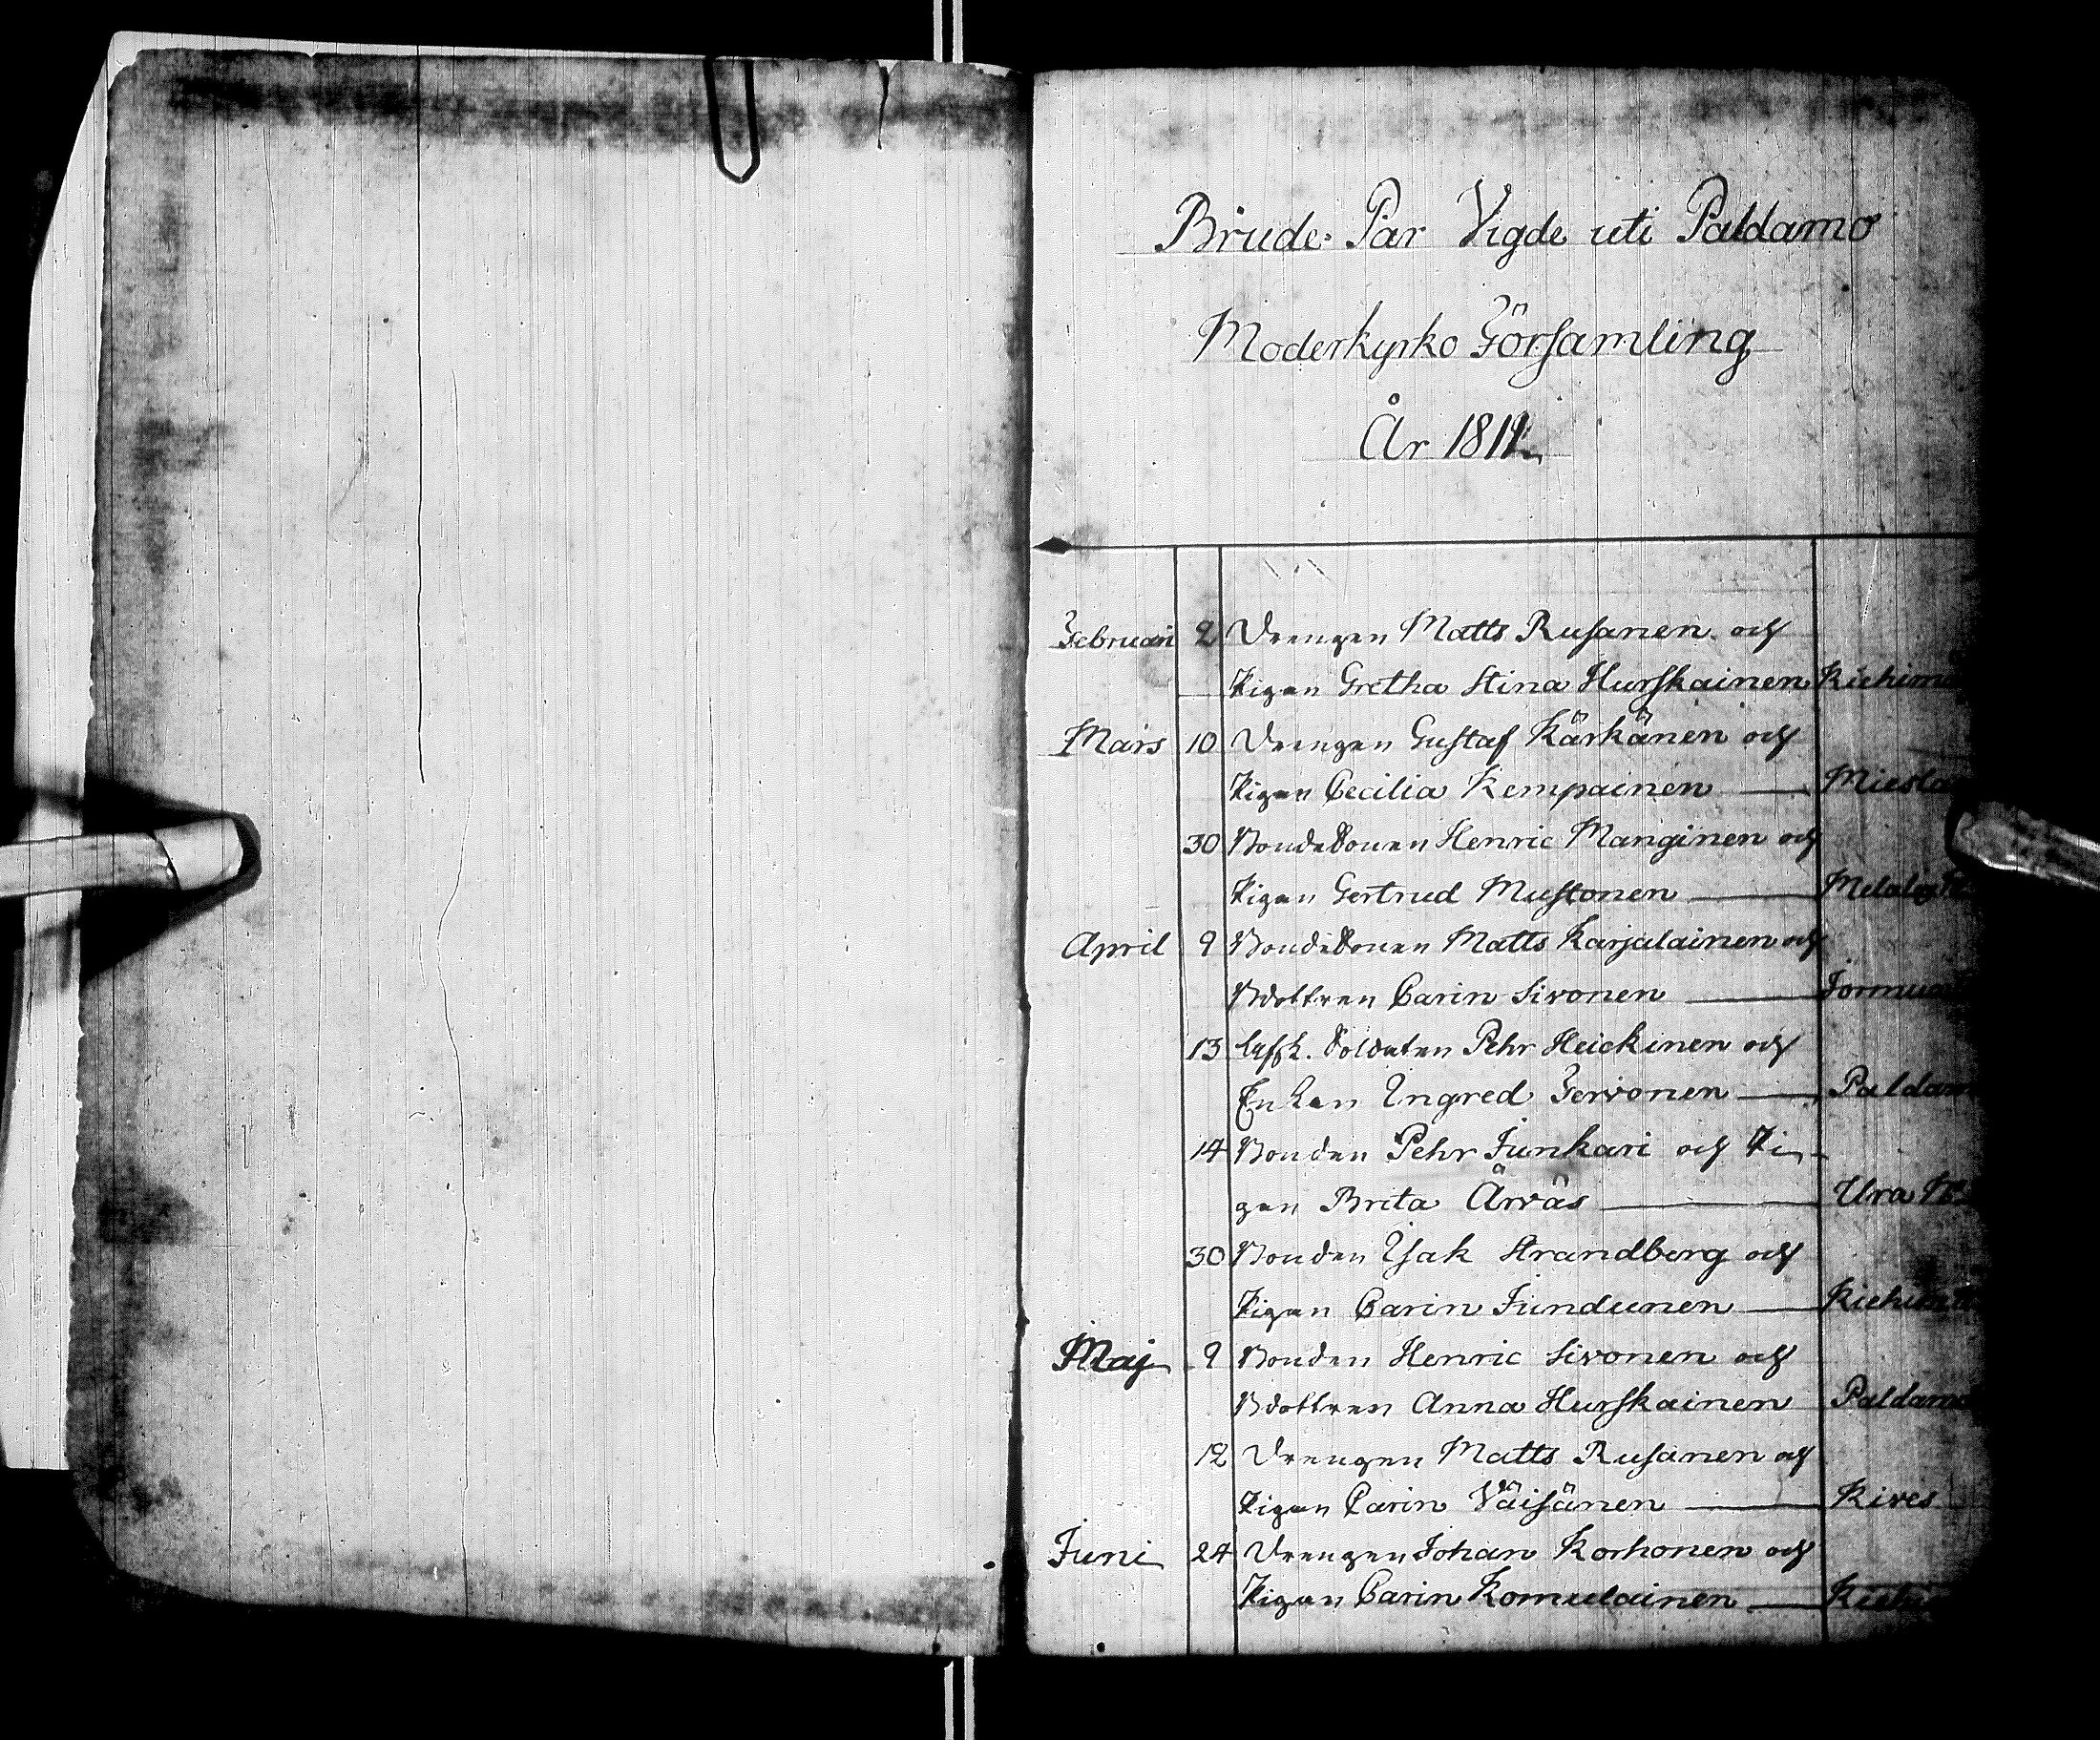 Brude Par Vigde uti Paldamo
Moderkyrko Församling
År 1811
Februari 2 Drengen Matts Rusanen och
Pigan Gretha Stina Hurskainen
Mars 10 Drengen Gustaf Kärkänen och
Pigan Cecilia Kempainen — Miesla
30 BondeSonen Henric Manginen och
Pigan Gertrud Mustonen —
April 9 BondeSonen Matts Karjalainen och
Bdottren Carin Sivonen — Jormua
13 Afsk. Soldaten Pehr Heickinen och
Enkan Ingred Servonen — Paldam
14 Bonden Pehr Junkari och Pi-
gan Brita Ärväs — Ura
30 Bonden Isak Strandberg och
Pigan Carin Jundunen —
Maj 9 Bonden Henric Sivonen och
Bdottren Anna Hurskainen Paldamo
12 Drengen Matts Rusanen och
Pigan Carin Väisänen — Kives
Juni 24 Drengen Johan Korhonen och
Pigan Carin Komulainen —